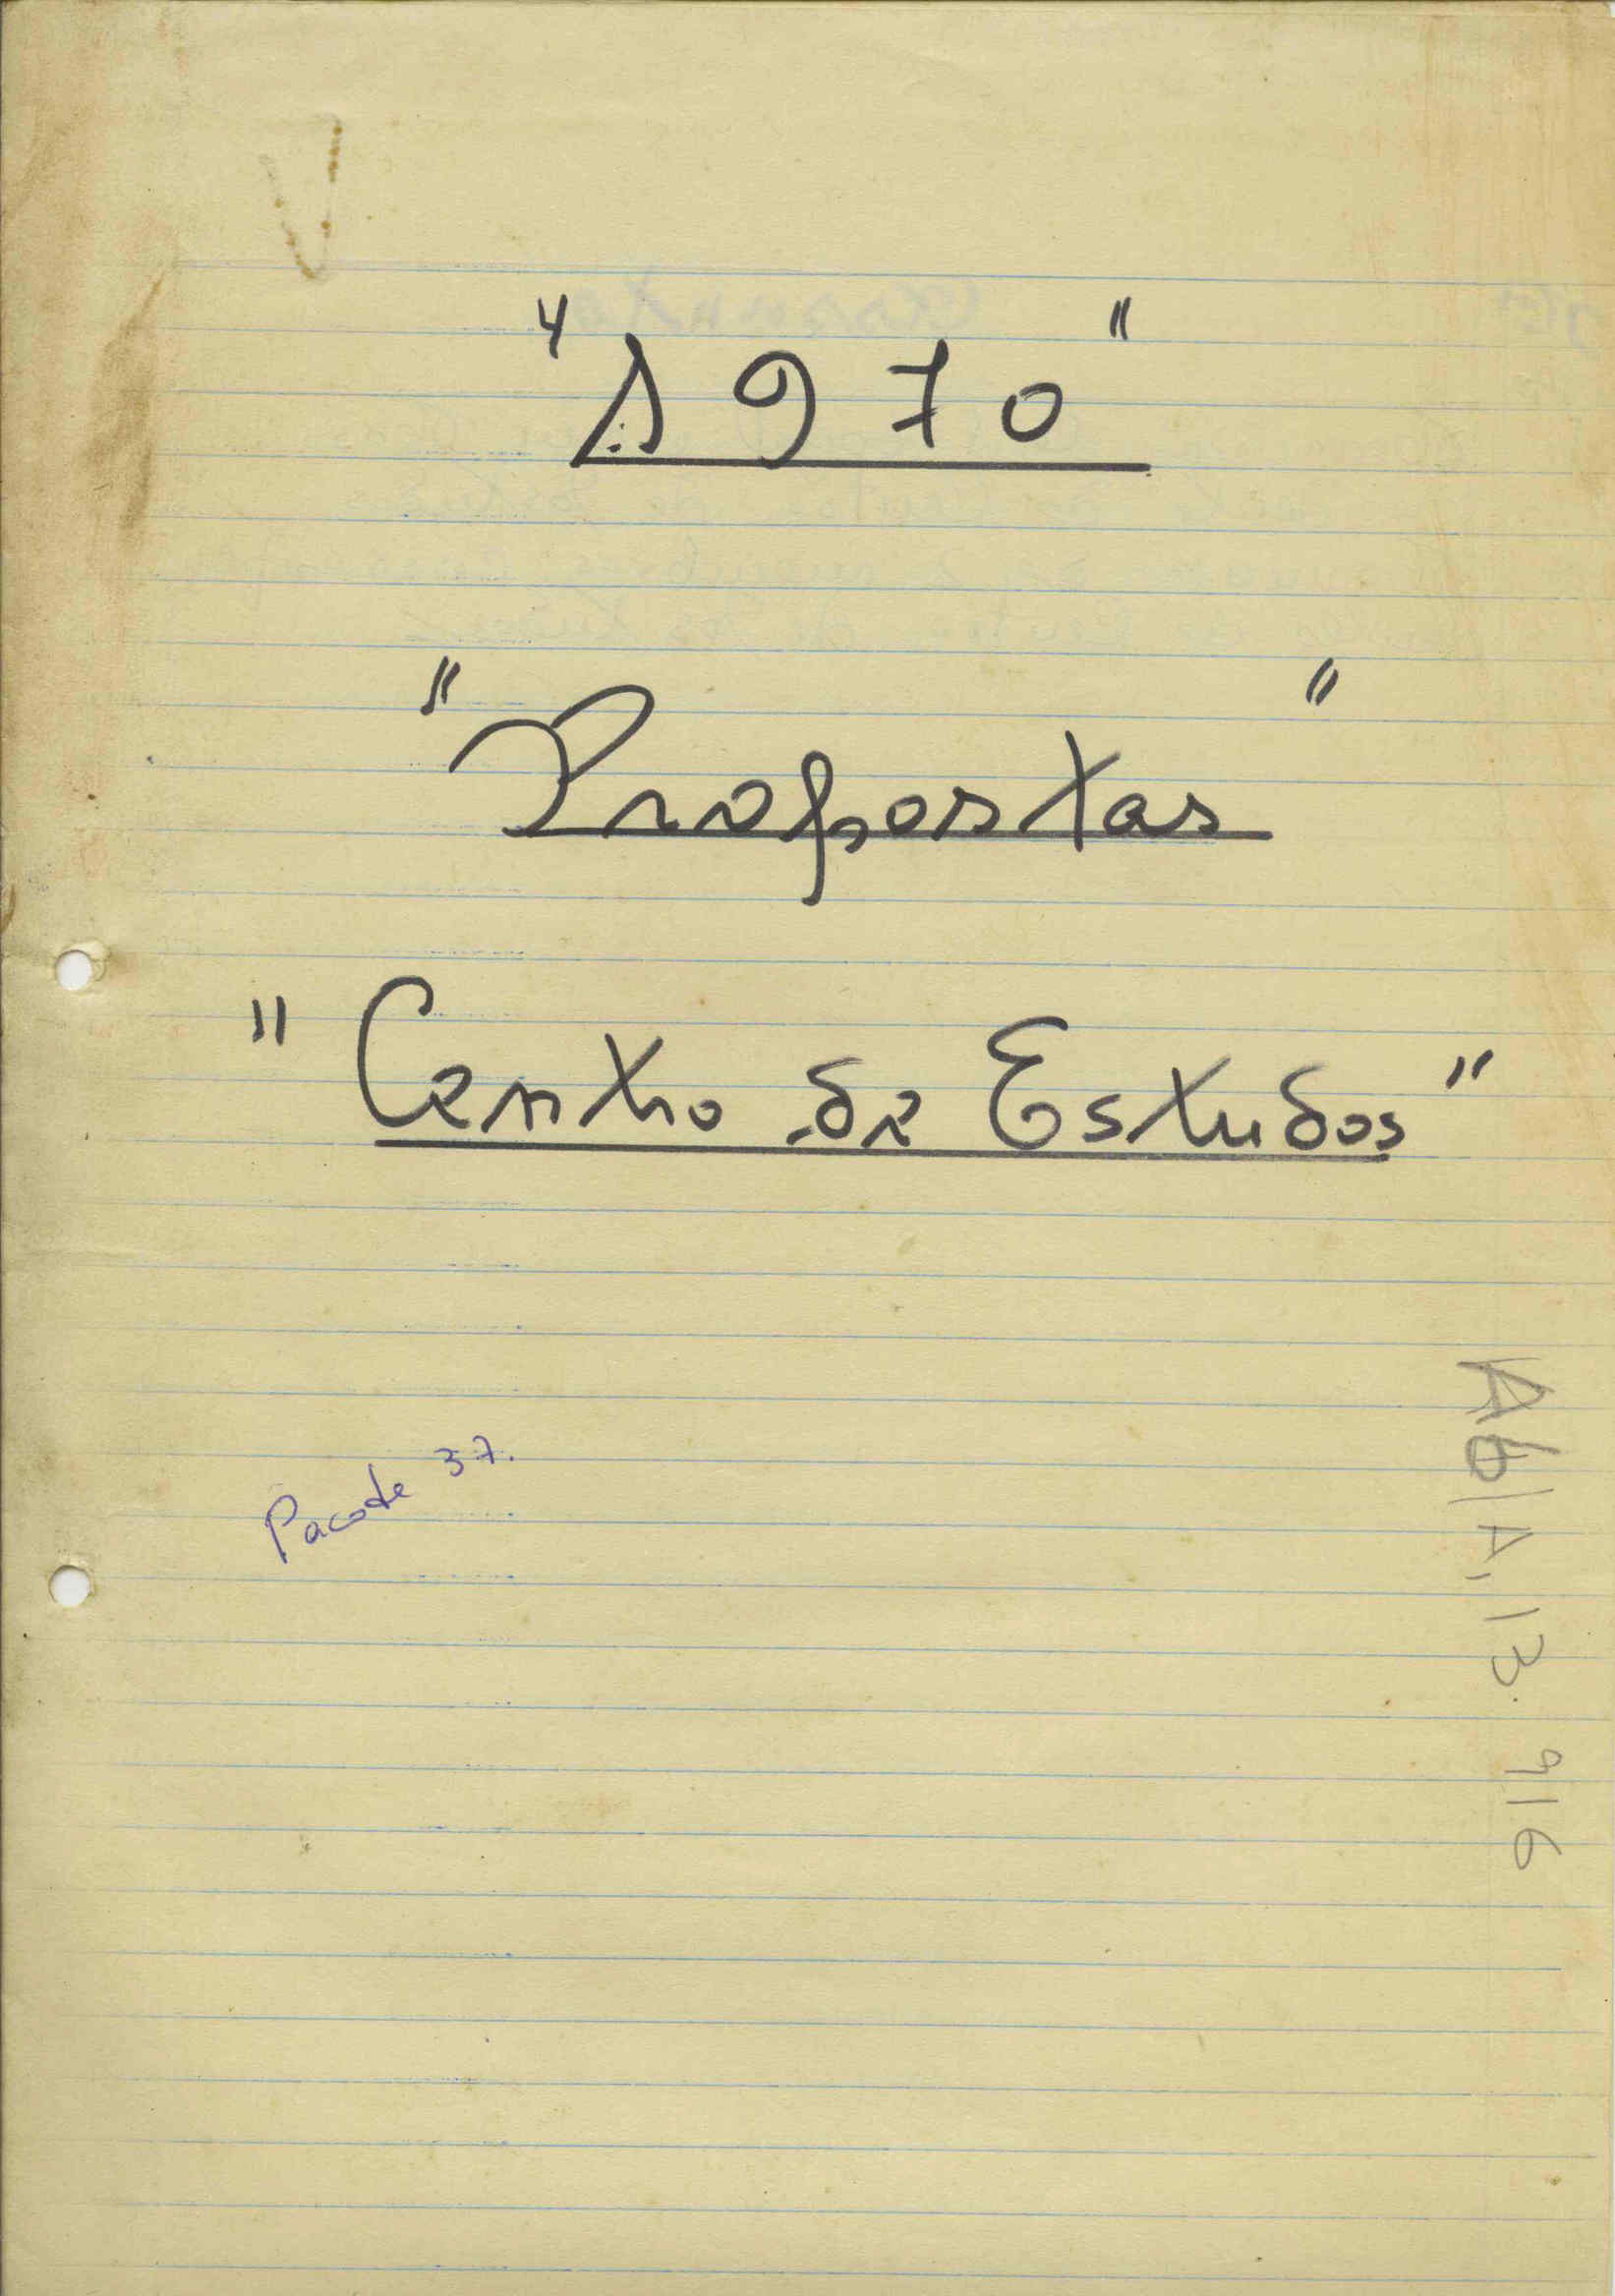 "1970"
"Propostas"
"Centro de Estudos"
Pacote 37.
Ab/A, 13. 916